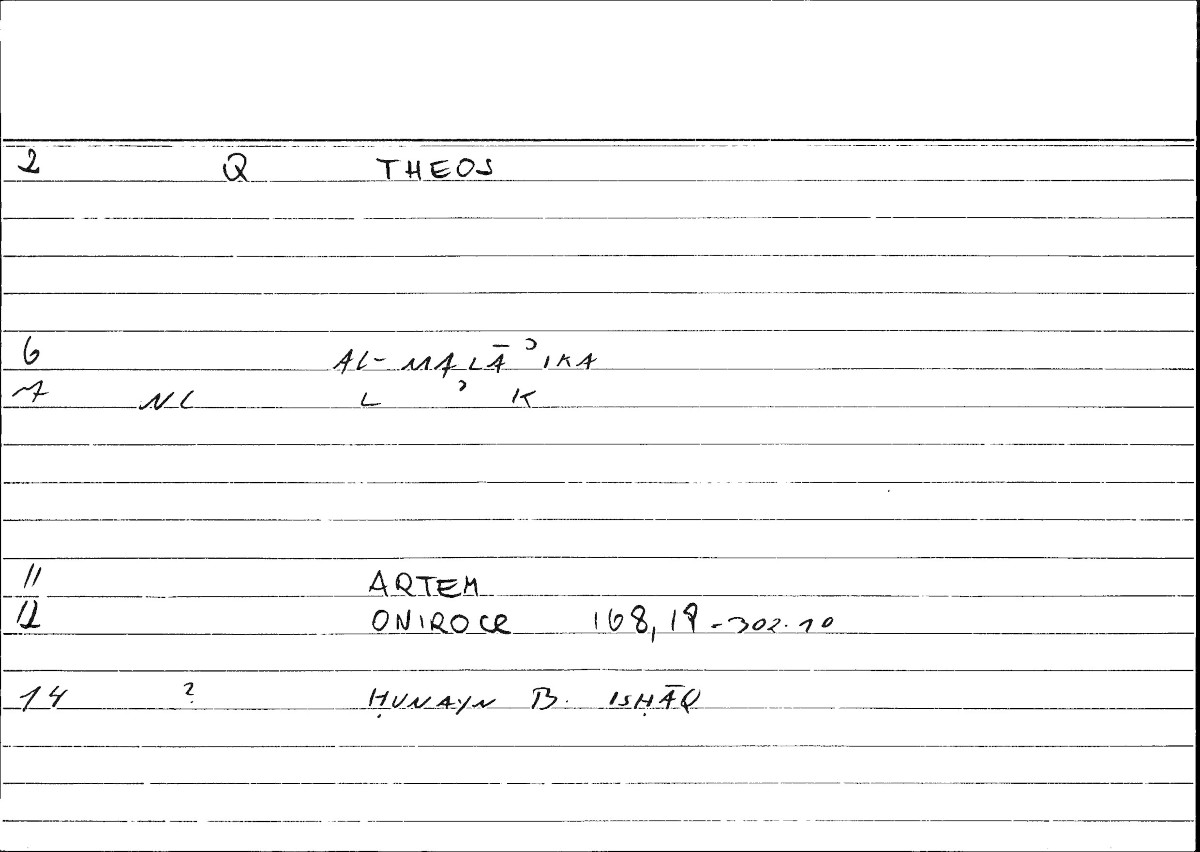 2 Q THEOS
6 AL-MALĀʾIKA
7 NL L ʾ K
11 ARTEM
12 ONIROCR 168,19-302.10
14 ? ḤUNAYN B. ISḤĀQ